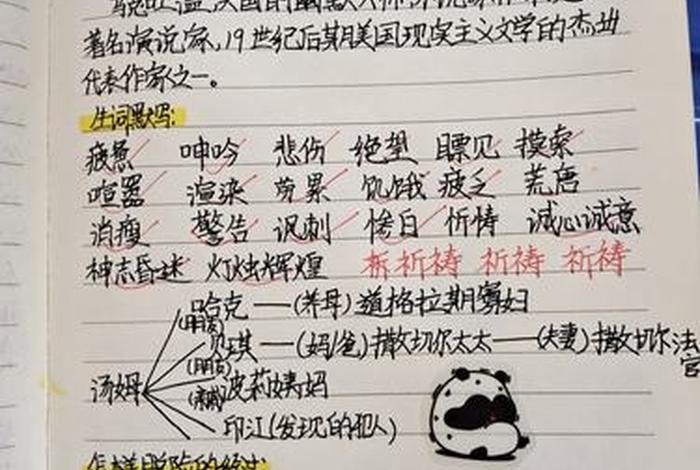 著名演说家,19世纪后期美国现实主义文学的杰出
代表作家之一。
生词默写:
疲惫 呻吟 悲伤 绝望 瞟见 摸索
喧嚣 渲染 劳累 饥饿 疲乏 荒唐
消瘦 警告 讽刺 惨白 祈祷 诚心诚意
神志昏迷 灯烛辉煌 祈祷 祈祷 祈祷
哈克——(养母)道格拉期寡妇
(朋友)
琪——(妈/爸)撒切尔太太——(夫妻)撒切尔法官
(朋友)
汤姆
(亲戚)波莉姨妈
印江(发现的犯人)